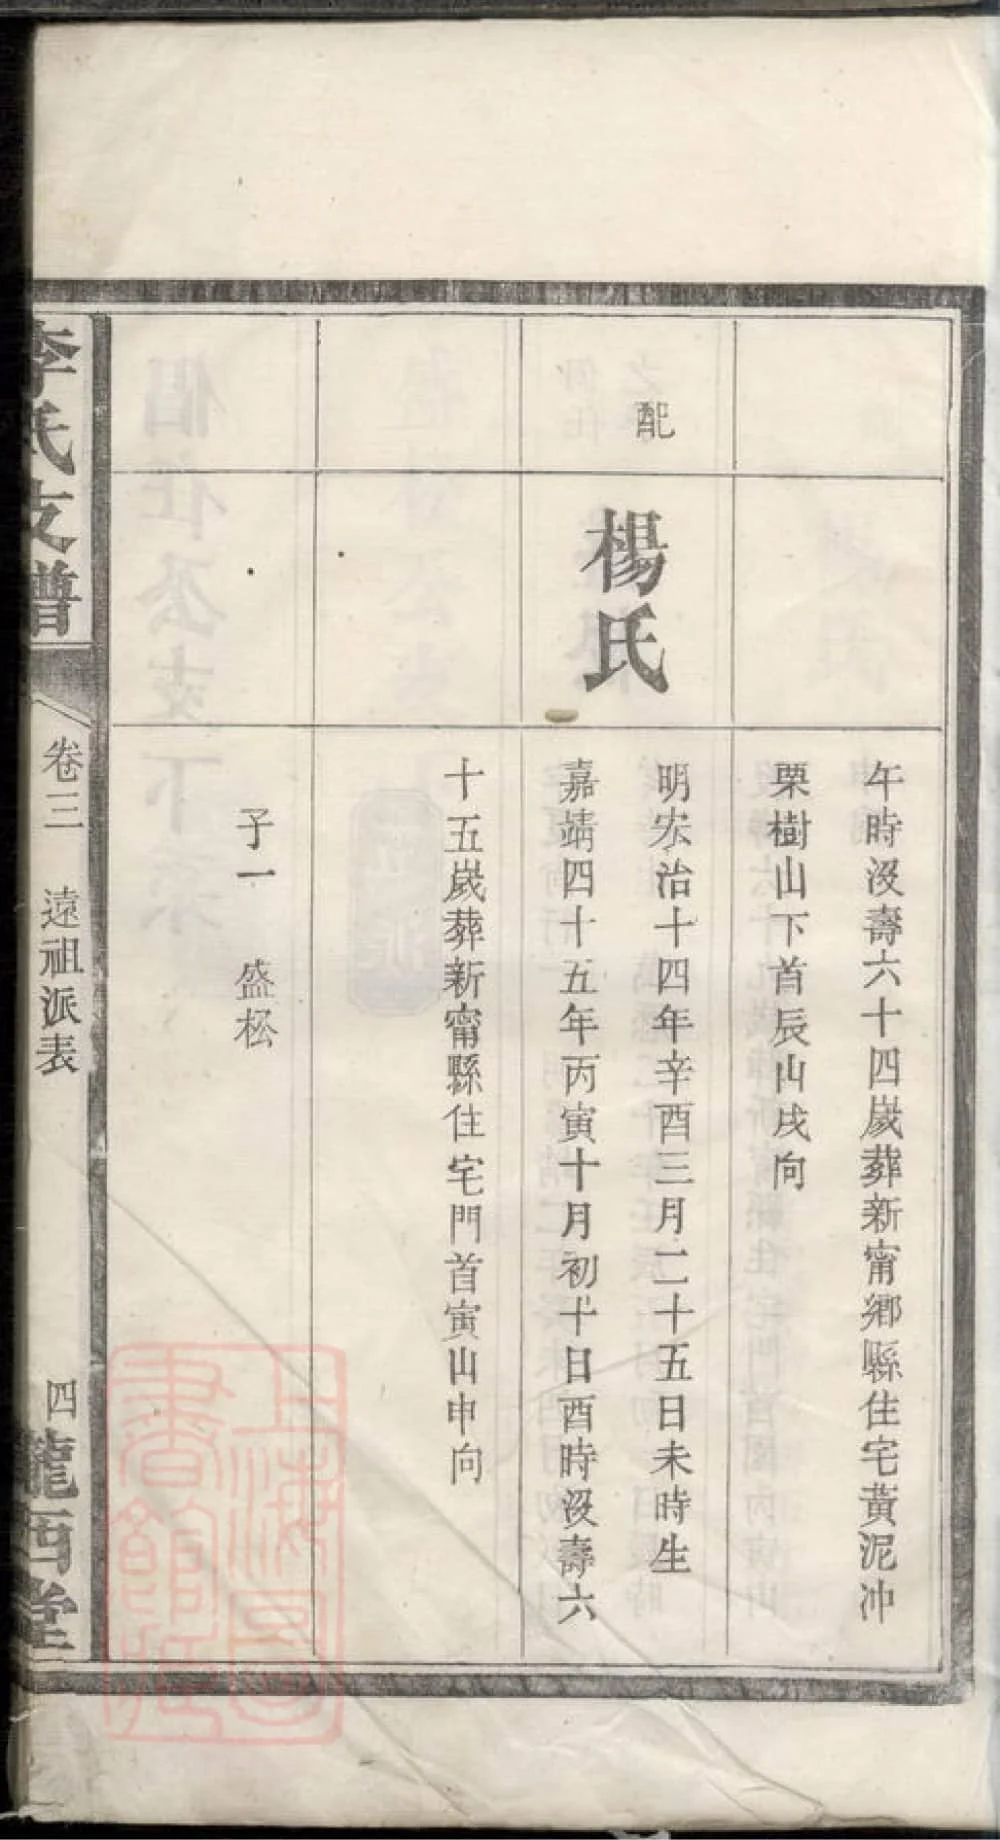 午時沒壽六十四歲葬新甯鄉縣住宅黃泥冲
栗樹山下首辰山戌向
配
楊氏
明宏治十四年辛酉三月二十五日未時生
嘉靖四十五年丙寅十月初十日酉時沒壽六
十五歲葬新甯縣住宅門首寅山申向
子一　盛松
李氏支譜
卷三　遠祖派表
四
隴西堂
上海圖
書館藏